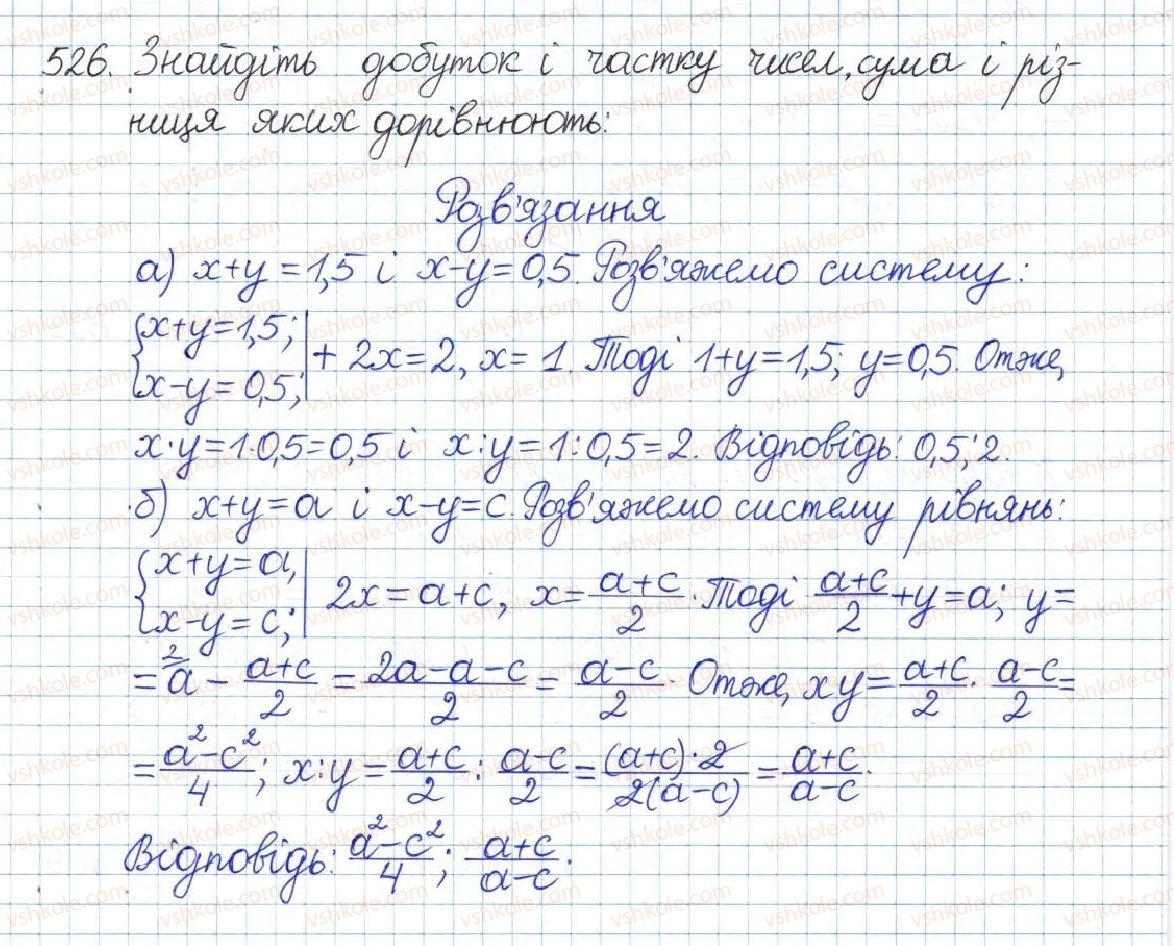 526. Знайдіть добуток і частку чисел, сума і різ-
ниця яких дорівнюють:
Розв'язання
а) x+y=1,5 і x-y=0,5. Розв'яжемо систему:
{x+y=1,5; x-y=0,5;| + 2x=2, x=1. Тоді 1+y=1,5; y=0,5. Отже,
x·y=1·0,5=0,5 і x:y=1:0,5=2. Відповідь: 0,5; 2.
б) x+y=a і x-y=c. Розв'яжемо систему рівнянь:
{x+y=a, x-y=c;| 2x=a+c, x=(a+c)/2. Тоді (a+c)/2+y=a; y=
=a^{2/}-(a+c)/2=(2a-a-c)/2=(a-c)/2. Отже, xy=(a+c)/2·(a-c)/2=
=(a²-c²)/4; x:y=(a+c)/2:(a-c)/2=((a+c)·2)/(2(a-c))=(a+c)/(a-c).
Відповідь: (a²-c²)/4; (a+c)/(a-c).